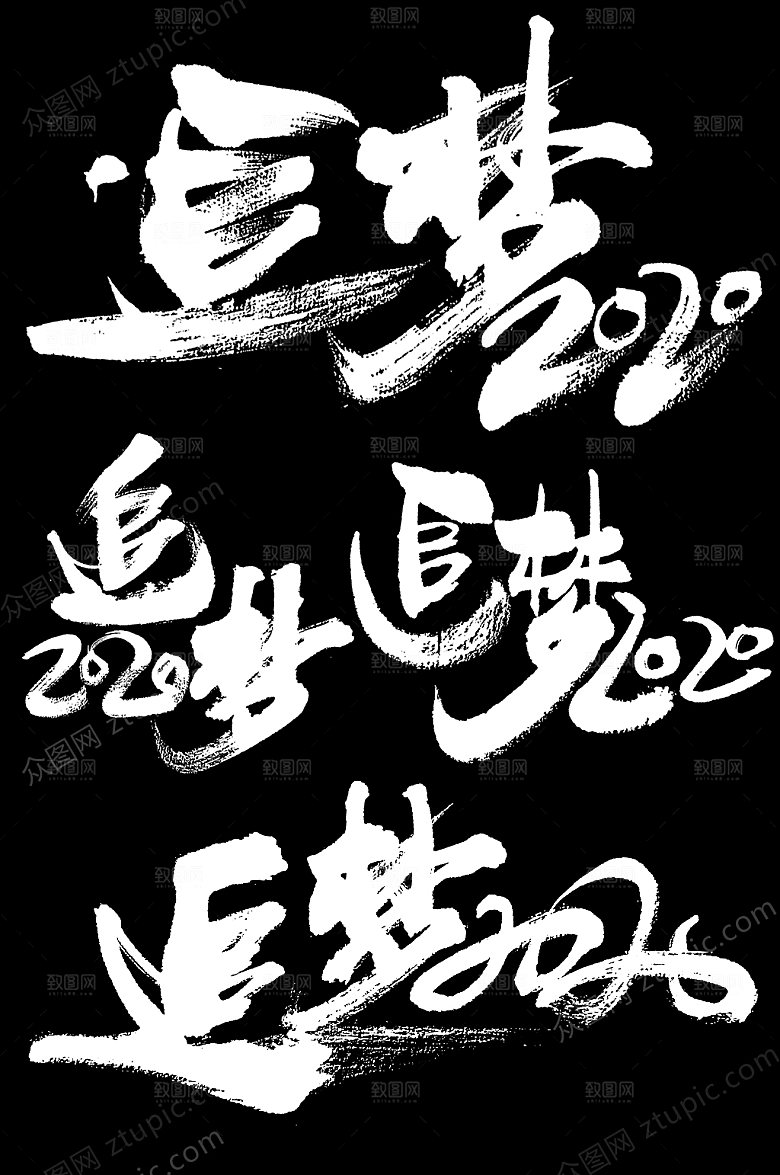 追梦2020
追梦2020
追梦2020
追梦2020
众图网 ztupic.com
致图网